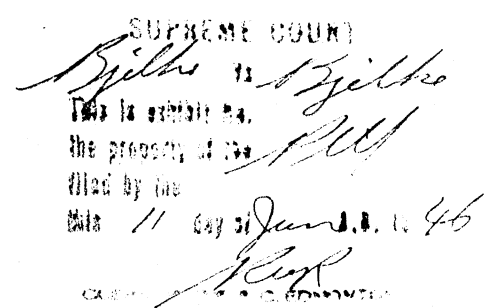 SUPREME COURT
Bjelke vs Bjelke
This is exhibit No.
the property of the Pltf
filed by the
this 11 day of Jun A.D. 19 46